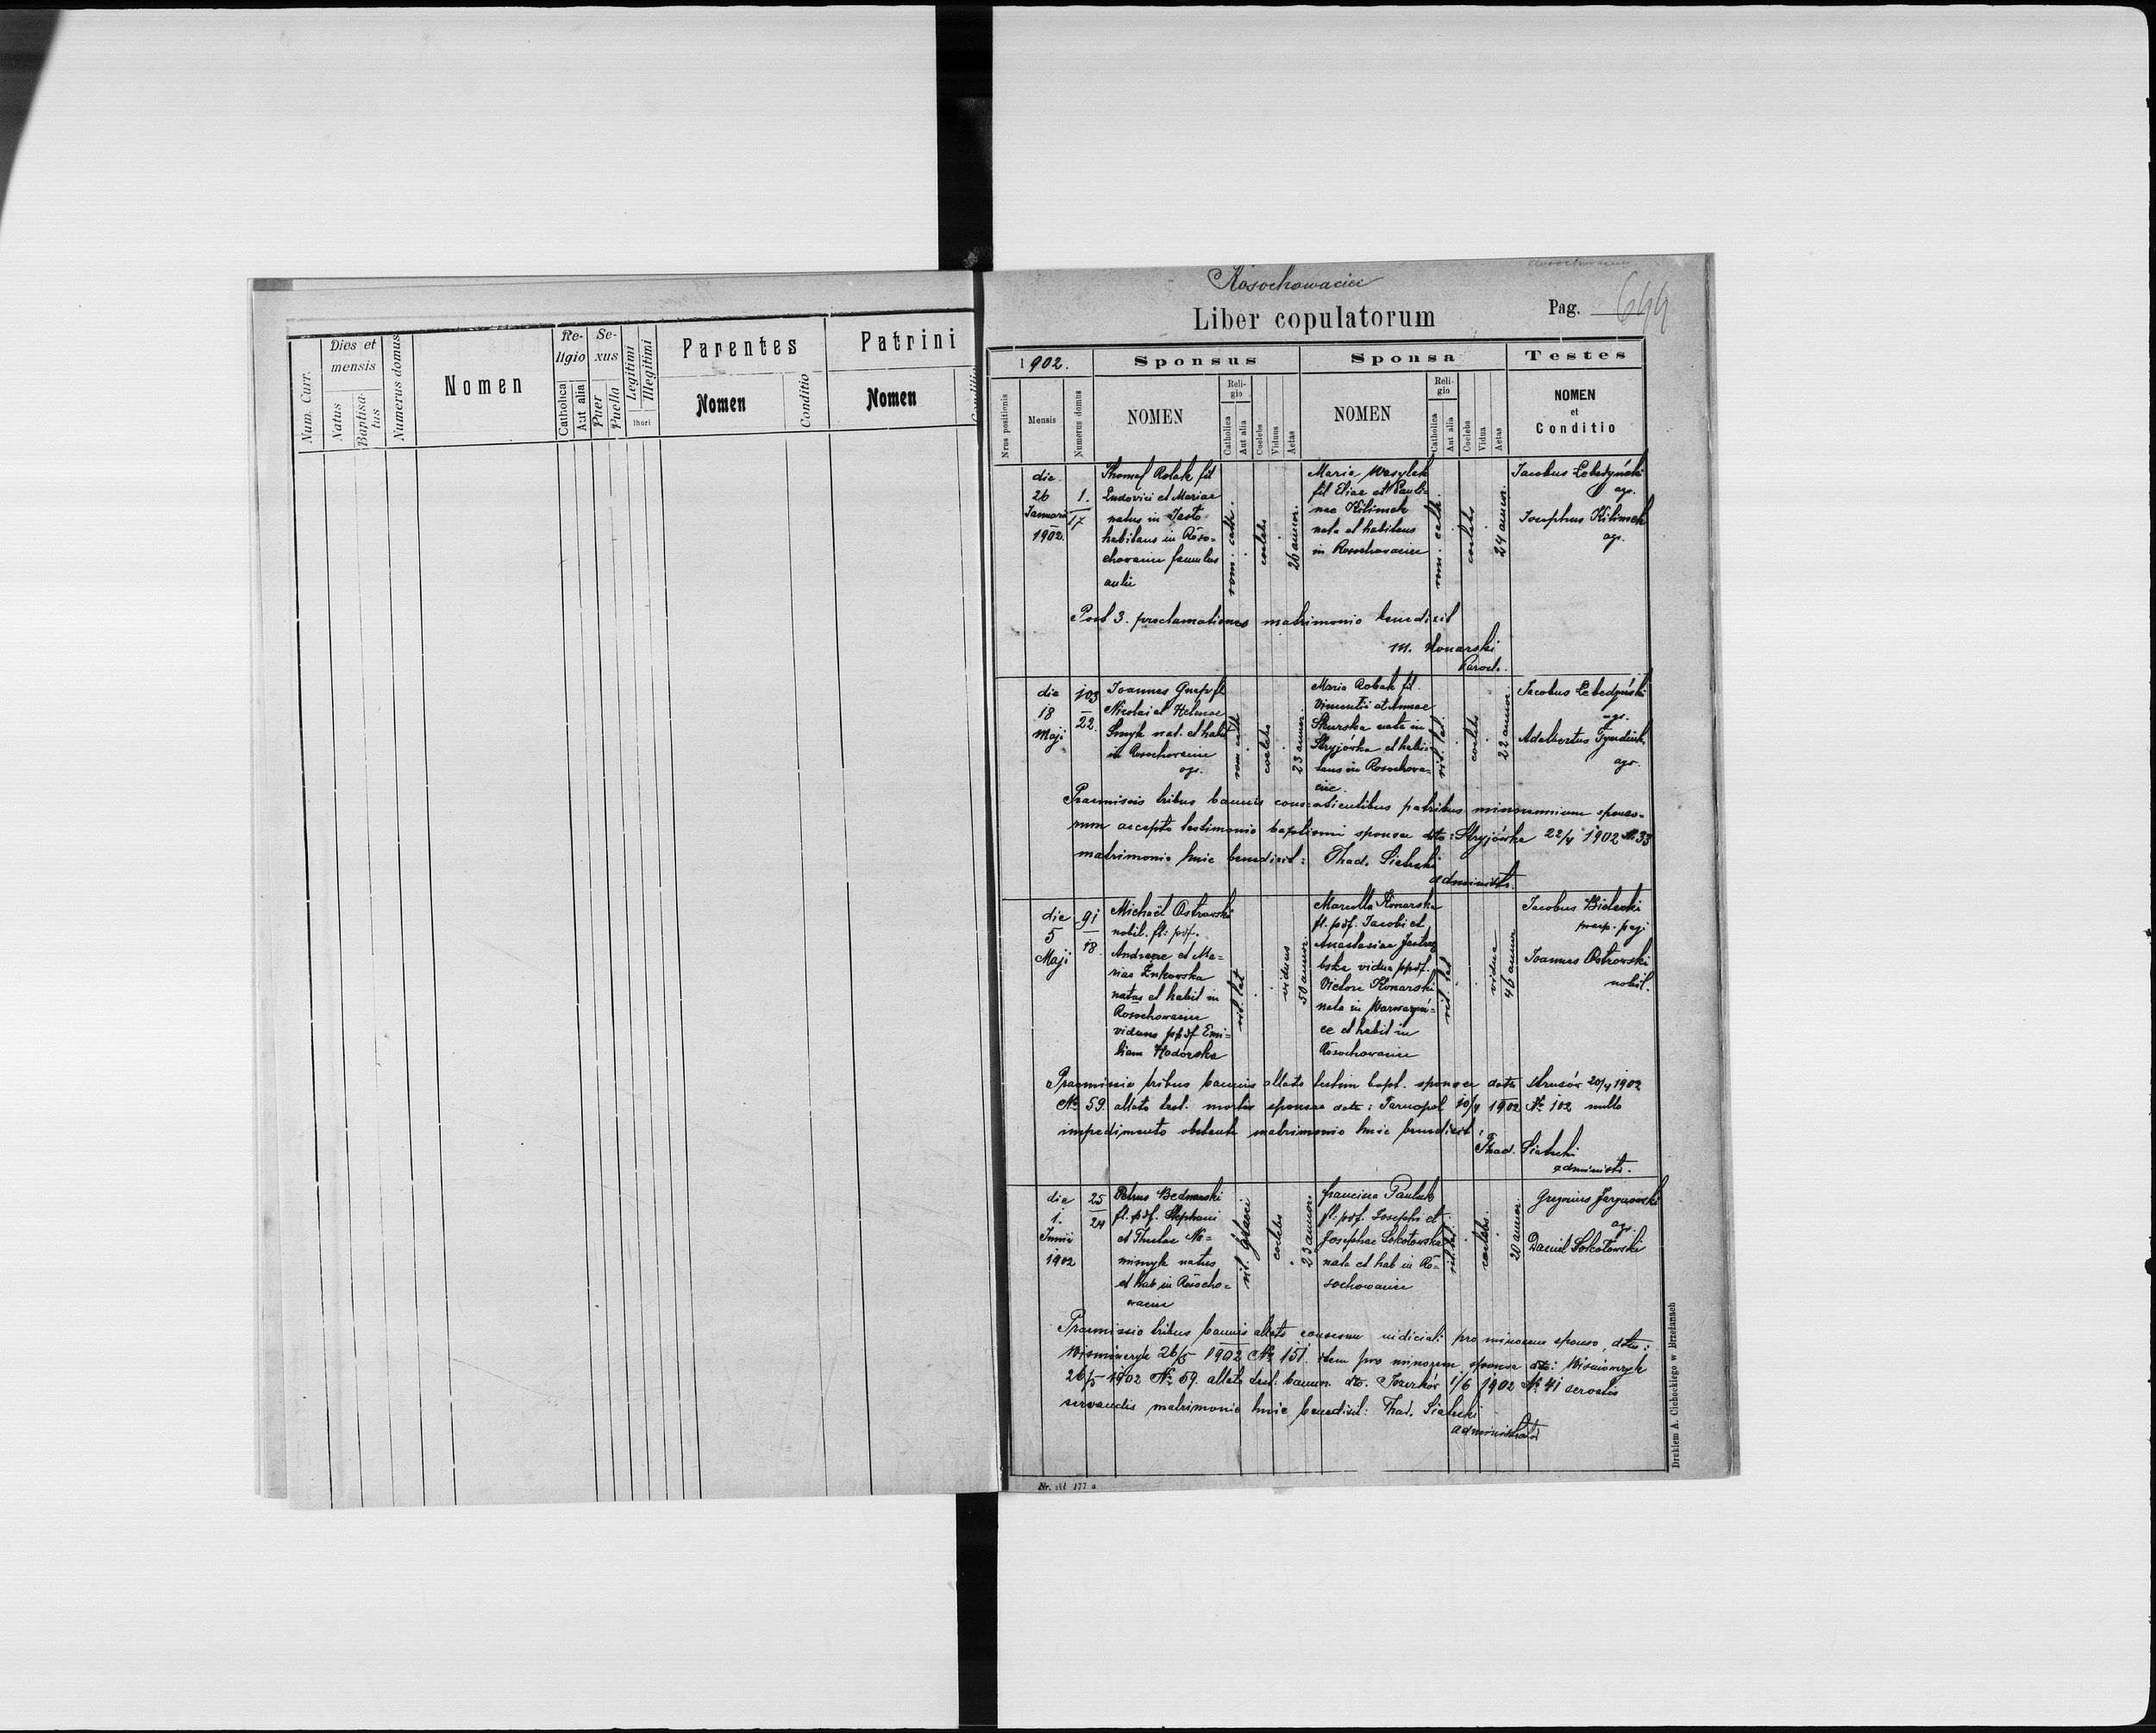 Num. Curr.
Dies et mensis
Natus
Baptisatus
Numerus domus
Nomen
Religio
Catholica
Aut alia
Sexus
Puer
Puella
Legitimi
Illegitimi
thori
Parentes
Nomen
Conditio
Patrini
Nomen
Rosochowaciec
Liber copulatorum
Pag.
1902.
Sponsus
Sponsa
Testes
Nrus positionis
Mensis
Numerus domus
NOMEN
Religio
Catholica
Aut alia
Coelebs
Viduus
Aetas
NOMEN
Religio
Catholica
Aut alia
Coelebs
Vidua
Aetas
NOMEN
et
Conditio
die
26
Januarii
1902
1.
17
Thomas Rolak fil
Ludovici et Mariae
natus in Jasło
habitans in Roso-
chowaciec famulus
aulic
rom. cath.
coelebs
26 annor.
Maria Wasylek
fil Eliae et Pauli-
nae Kilimek
nata et habitans
in Rosochowaciec
rom. cath.
coelebs
24 annor.
Jacobus Lebedyński
agr.
Josephus Kilimek
agr.
Post 3. proclamationes matrimonio benedixit
M. Konarski
Paroch.
die
18
Maji
103
22.
Joannes
Nicolai et Helenae
Smyk nat. et habit
in Rosochowaciec
agr.
rom cath
coelebs
23 annor.
Maria Robak fil.
Vincentii et Annae
Skurska nata in
Stryjówka et habi-
tans in Rosochowa-
ciec.
rit. lat.
coelebs
22 annor.
Jacobus Lebedyński
agr.
Adalbertus
agr.
Praemissis tribus bannis consentientibus patribus minorennium sponso-
rum accepto testimonio baptismi sponsae dto: Stryjówka 22/4 1902 № 33
matrimonio huic benedixit: Thad.
administr.
die
5
Maji
91
18.
Michaël Ostrowski
nobil. fl: pdf.
Andreae et Ma-
riae Żukowska
natus et habit in
Rosochowaciec
viduus ppdf Emi-
liam Hodorska
rit. lat
viduus
50 annor.
Marcella Konarska
fl. pdf. Jacobi et
Anastasiae Jastrzę
bska vidua ppdf.
Victore Konarski
nata in Warwaryń-
ce et habit in
Rosochowaciec
rit. lat
vidua
46 annor
Jacobus Bielecki
praep. pagi
Joannes Ostrowski
nobil.
Praemissis tribus bannis allato testim bapt. sponsae dato Strusów 20/4 1902
№ 59. allato test. mortis sponsae dato: Tarnopol 10/4 1902 № 102 nullo
impedimento obstante matrimonio huic benedixit:
Thad.
administr.
die
1.
Junii
1902
25
24
Petrus Bednarski
fl. pdf. Stephani
et Theclae Ne-
mirnyk natus
et hab in Rosocho-
waciec
rit. graeci
coelebs
23 annor.
Francisca Pauluk
fl. pdf. Josephi et
Josephae Sokołowska
nata et hab in Ro-
sochowaciec
rit. lat.
coelebs.
20 annor.
Gregorius
agr.
Daniel Sokołowski
Praemissis tribus bannis allato consensu iudiciali pro minorenni sponso, dto:
Wiśniowczyk 26/5 1902 № 151. item pro minorem sponsa dto: Wiśniowczyk
26/5 1902 № 59. allato test. bannor. dto. 1/6 1902 № 41 servatis
servandis matrimonio huic benedixit: Thad.
administrator
Drukiem A. Cichockiego w Brzeżanach